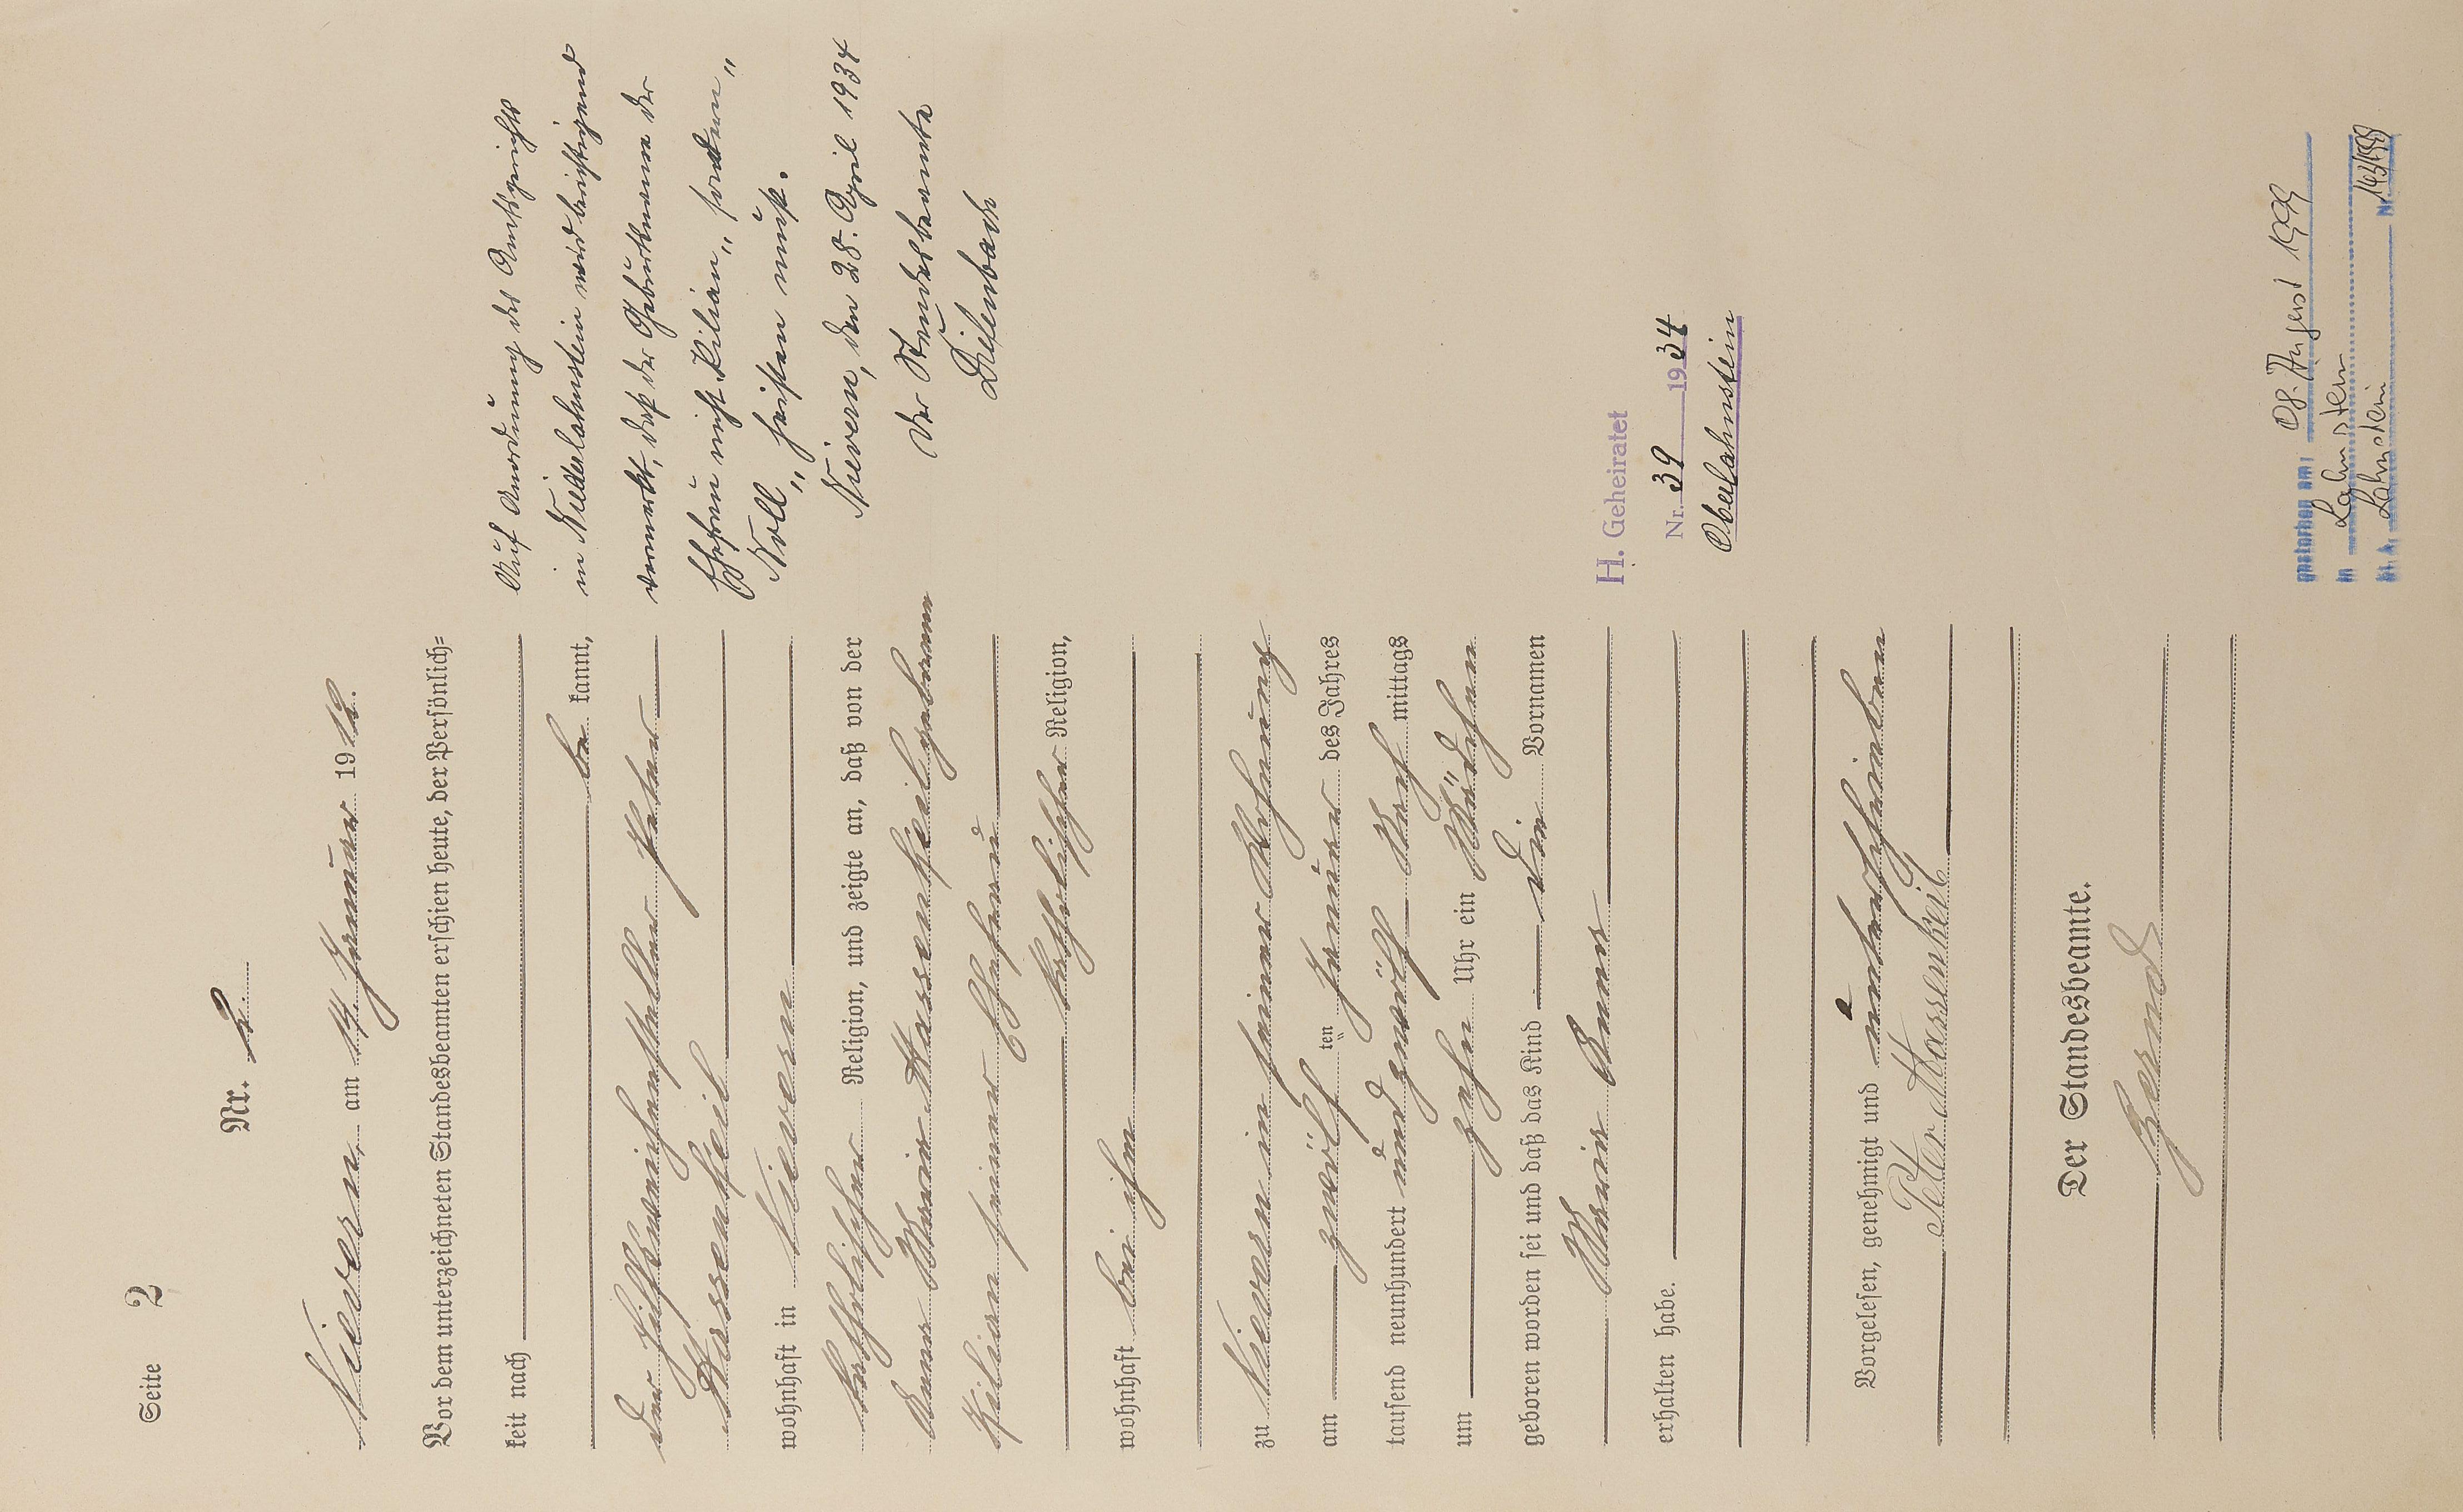 Seite 2
Nr. 2.
Nievern, am 14. Januar 1912.
Vor dem unterzeichneten Standesbeamten erschien heute, der Persönlich=
keit nach
be kannt,
der Hilfsweichensteller Peter
Massenkeil
wohnhaft in Nievern
katholischer Religion, und zeigte an, daß von der
Anna Maria Massenkeil geborenen
Kilian seiner Ehefrau
katholischer Religion,
wohnhaft bei ihm
zu Nievern in seiner Wohnung
am zwölf ten Januar des Jahres
tausend neunhundert und zwölf Nach mittags
um zehn Uhr ein Mädchen
geboren worden sei und daß das Kind die Vornamen
Maria Anna
erhalten habe.
Vorgelesen, genehmigt und unterschrieben
Peter Massenkeil
Der Standesbeamte.
Auf Anordnung des Amtsgerichts
in Niederlahnstein wird berichtigend
vermerkt, daß der Geburtsname der
Ehefrau nicht „Kilian„ sondern „
Noll„ heißen muß.
Nievern, den 28. April 1934
Der Standesbeamte
H. Geheiratet
Nr. 39 1934
Oberlahnstein
gestorben am: 08. August 1999
in Lahnstein
St. A. Lahnstein Nr. 143/1999